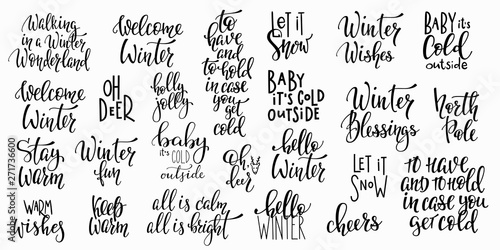 Walking
in a Winter
Wonderland
Welcome
Winter
Stay
warm
WARM
wishes
Welcome
Winter
OH
DEER
Winter
fun
Keep
warm
holly
jolly
baby
it's COLD
outside
all is calm
all is bright
to
have
and
to hold
in case
you
get
cold
Oh,
deer
LET iT
SNOW
BABY
iT'S COLD
OUTSIDE
hello
Winter
hello
WINTER
Winter
Wishes
Winter
Blessings
LET iT
SNOW
cheers
BABY it's
Cold
outside
North
Pole
to HAVE
and to hold
in case you
get cold
Adobe Stock | #271736600